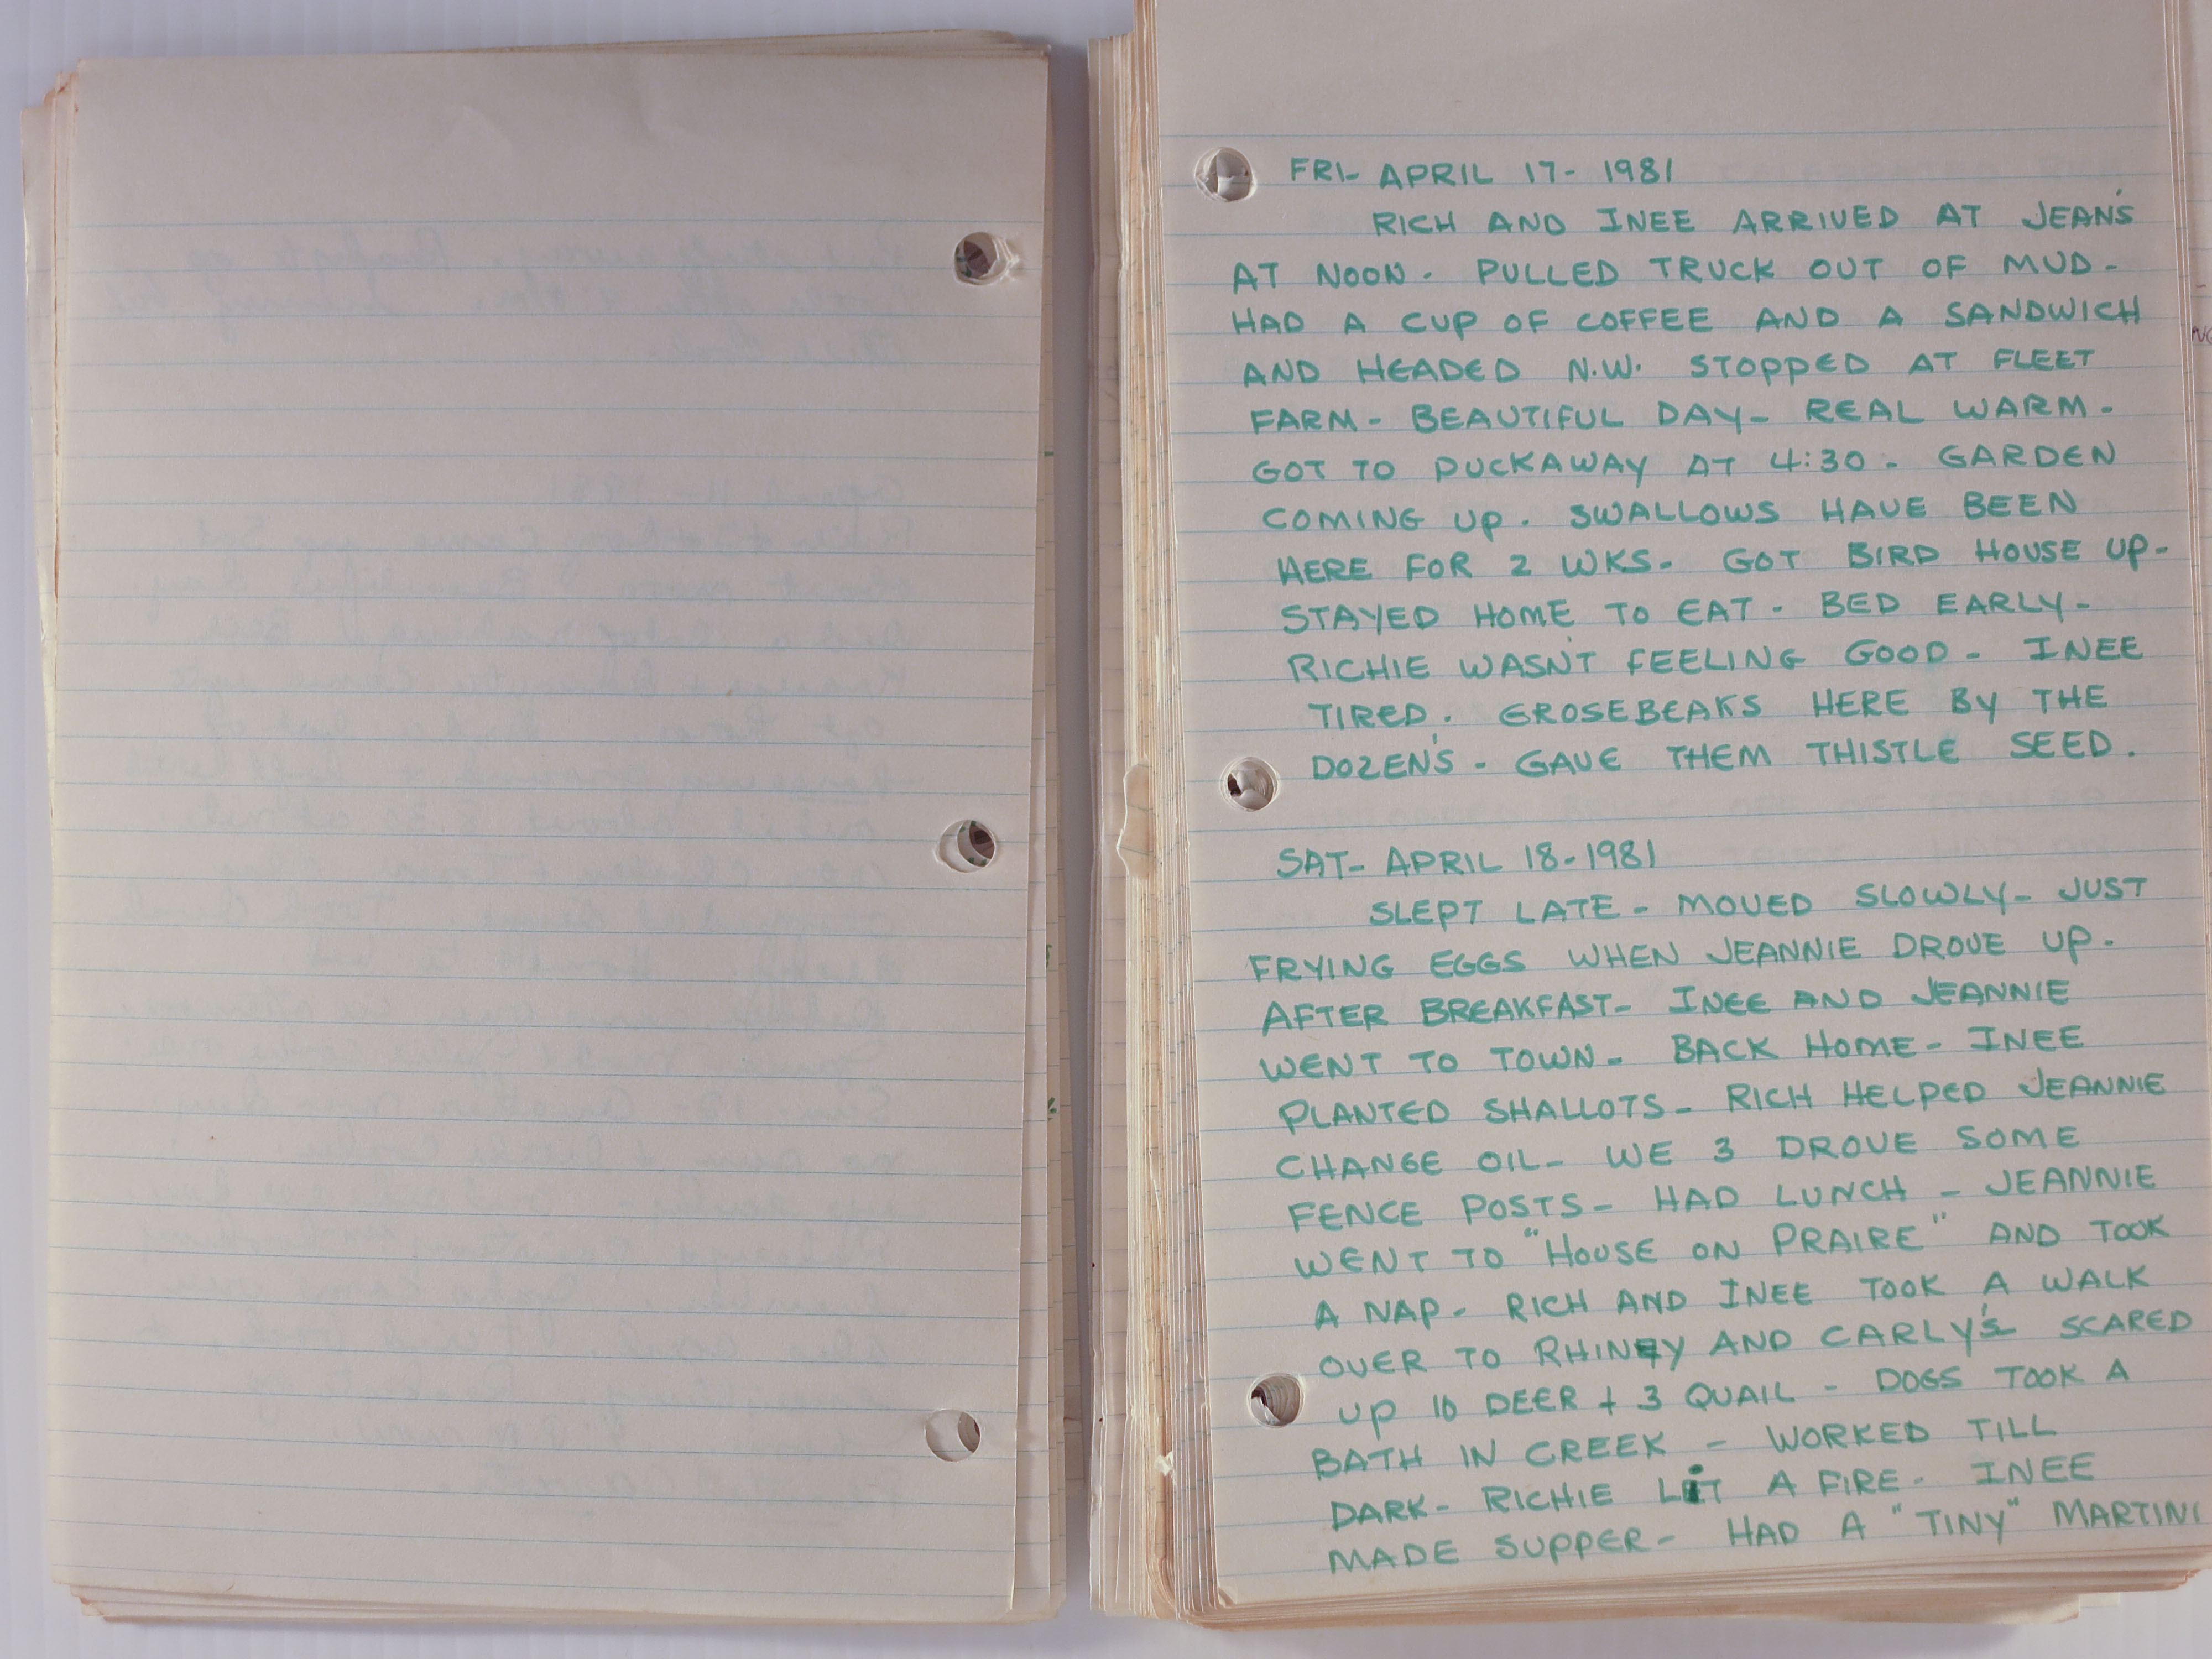 FRI- APRIL 17- 1981
RICH AND INEE ARRIVED AT JEAN'S
AT NOON. PULLED TRUCK OUT OF MUD-
HAD A CUP OF COFFEE AND A SANDWICH
AND HEADED N.W. STOPPED AT FLEET
FARM- BEAUTIFUL DAY- REAL WARM-
GOT TO PUCKAWAY AT 4:30- GARDEN
COMING UP. SWALLOWS HAVE BEEN
HERE FOR 2 WKS- GOT BIRD HOUSE UP-
STAYED HOME TO EAT- BED EARLY-
RICHIE WASN'T FEELING GOOD- INEE
TIRED. GROSEBEAKS HERE BY THE
DOZEN'S- GAVE THEM THISTLE SEED.
SAT- APRIL 18-1981
SLEPT LATE- MOVED SLOWLY- JUST
FRYING EGGS WHEN JEANNIE DROVE UP.
AFTER BREAKFAST- INEE AND JEANNIE
WENT TO TOWN- BACK HOME- INEE
PLANTED SHALLOTS- RICH HELPED JEANNIE
CHANGE OIL- WE 3 DROVE SOME
FENCE POSTS- HAD LUNCH - JEANNIE
WENT TO "HOUSE ON PRAIRE" AND TOOK
A NAP- RICH AND INEE TOOK A WALK
OVER TO RHINEY AND CARLY'S SCARED
UP 10 DEER + 3 QUAIL - DOGS TOOK A
BATH IN CREEK - WORKED TILL
DARK- RICHIE LIT A FIRE- INEE
MADE SUPPER- HAD A "TINY" MARTINI